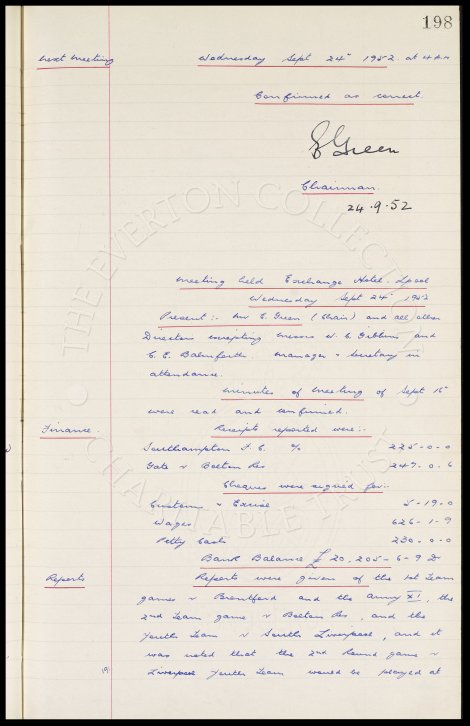 198
Next Meeting Wednesday Sept 24th 1952 at 4 P.M
Confirmed as correct.
E Green
Chairman.
24.9.52
Meeting held Exchange Hotel. L'pool
Wednesday Sept 24th 1952
Present:- Mr E. Green (Chair) and all other
Directors excepting Messrs W. C. Gibbins and
C. E. Balmforth. Manager & Secretary in
attendance.
Minutes of Meeting of Sept 16th
were read and confirmed.
Finance. Receipts reported were:-
Southampton F.C. % 225-0-0
Gate v Bolton Res 247-0-6
Cheques were signed for:-
Customs & Excise 5-19-0
Wages 626-1-9
Petty Cash 230-0-0
Bank Balance £20,205-6-9 Dr
Reports Reports were given of the 1st Team
games v Brentford and the Army XI, the
2nd Team game v Bolton Res, and the
Youth Team v South Liverpool, and it
was noted that the 2nd Round game v
Liverpool Youth Team would be played at
THE EVERTON COLLECTION
CHARITABLE TRUST